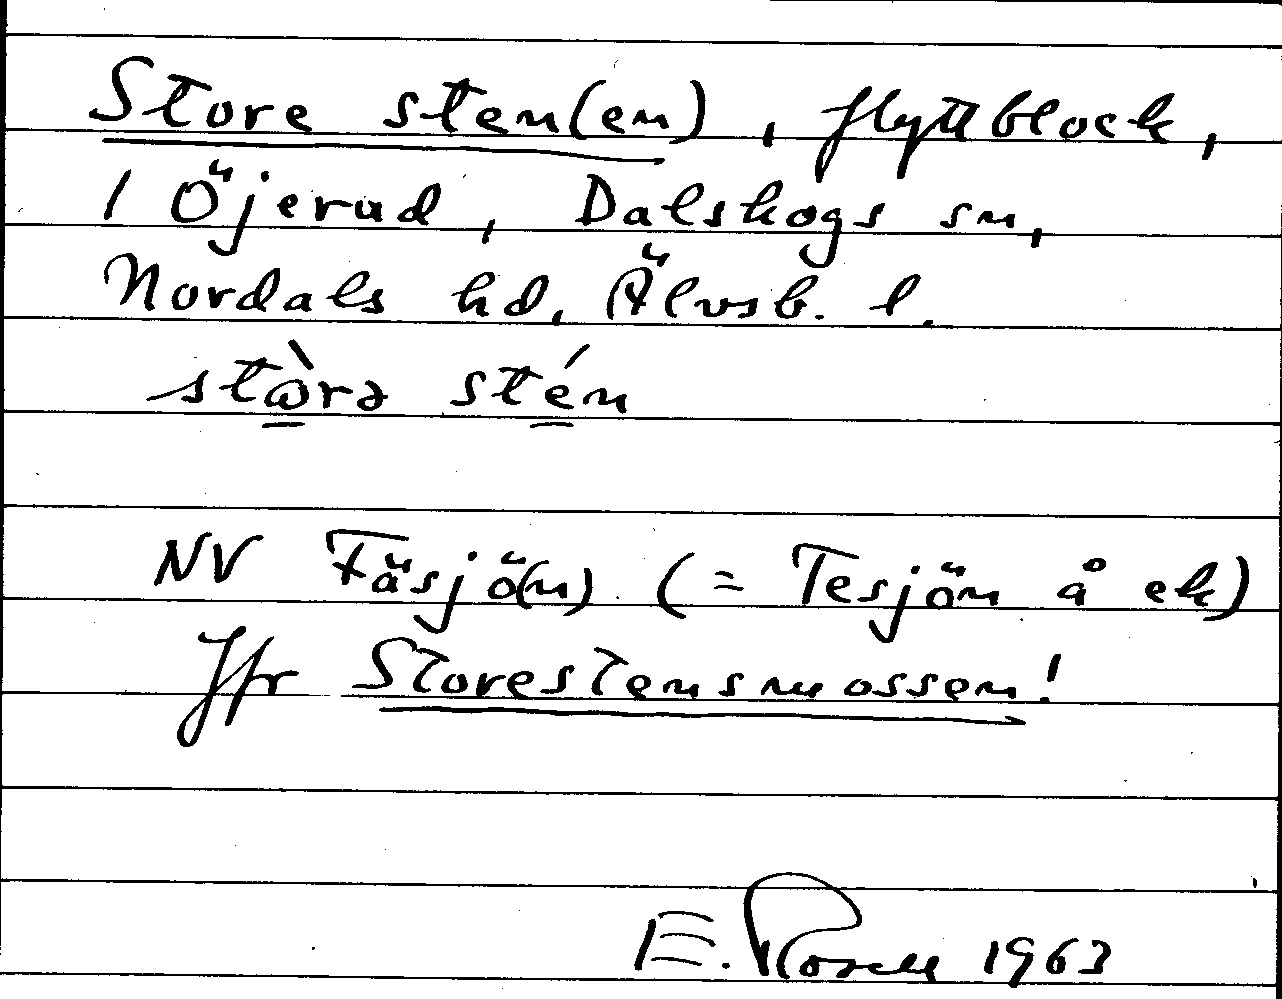 Store sten(en), flyttblock,
1 Öjerud, Dalskogs sn,
Nordals hd, Älvsb. l.
stɷ̀rə stén
NV Fäsjö(n) (= Tesjön å ek)
Jfr Storestensmossen!
E. Rosell 1963